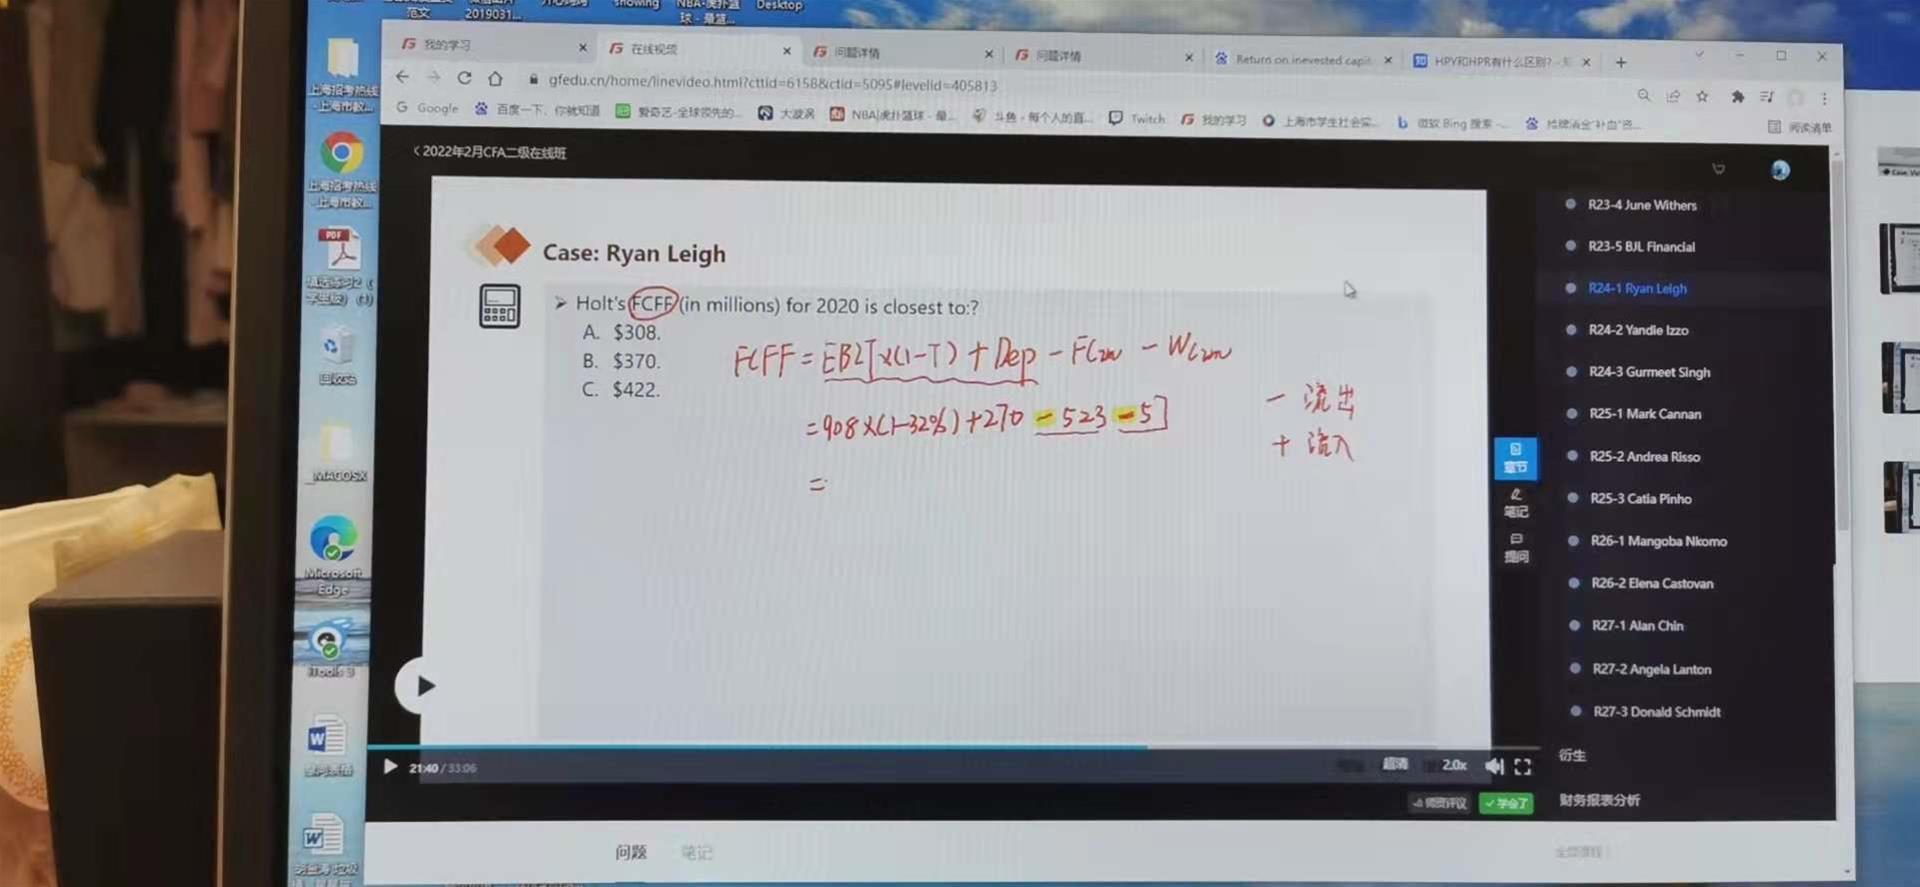 范文
2019031...
showing
NBA-虎扑篮
球 - 最篮...
Desktop
我的学习
在线视频
问题详情
问题详情
Return on inevested capit
HPY和HPR有什么区别? -
gfedu.cn/home/linevideo.html?cttid=6158&ctid=5095#levelid=405813
Google
百度一下，你就知道
爱奇艺-全球领先的...
大漩涡
NBA|虎扑篮球 - 最...
斗鱼 - 每个人的直...
Twitch
我的学习
上海市学生社会实...
微软 Bing 搜索 -...
阅读清单
上海招考热线
-上海市教...
上海招考热线
-上海市教...
PDF
回收站
_MACOSX
Microsoft
Edge
iTools 3
< 2022年2月CFA二级在线班
Case: Ryan Leigh
➢ Holt's FCFF (in millions) for 2020 is closest to:?
A. $308.
B. $370.
C. $422.
FCFF = EBIT×(1-T) + Dep - FCInv - WCInv
=908×(1-32%)+270 - 523 - 5]
=
- 流出
+ 流入
章节
笔记
提问
R23-4 June Withers
R23-5 BJL Financial
R24-1 Ryan Leigh
R24-2 Yandie Izzo
R24-3 Gurmeet Singh
R25-1 Mark Cannan
R25-2 Andrea Risso
R25-3 Catia Pinho
R26-1 Mangoba Nkomo
R26-2 Elena Castovan
R27-1 Alan Chin
R27-2 Angela Lanton
R27-3 Donald Schmidt
衍生
财务报表分析
21:40 / 33:06
超清
2.0x
师资评议
学会了
问题
笔记